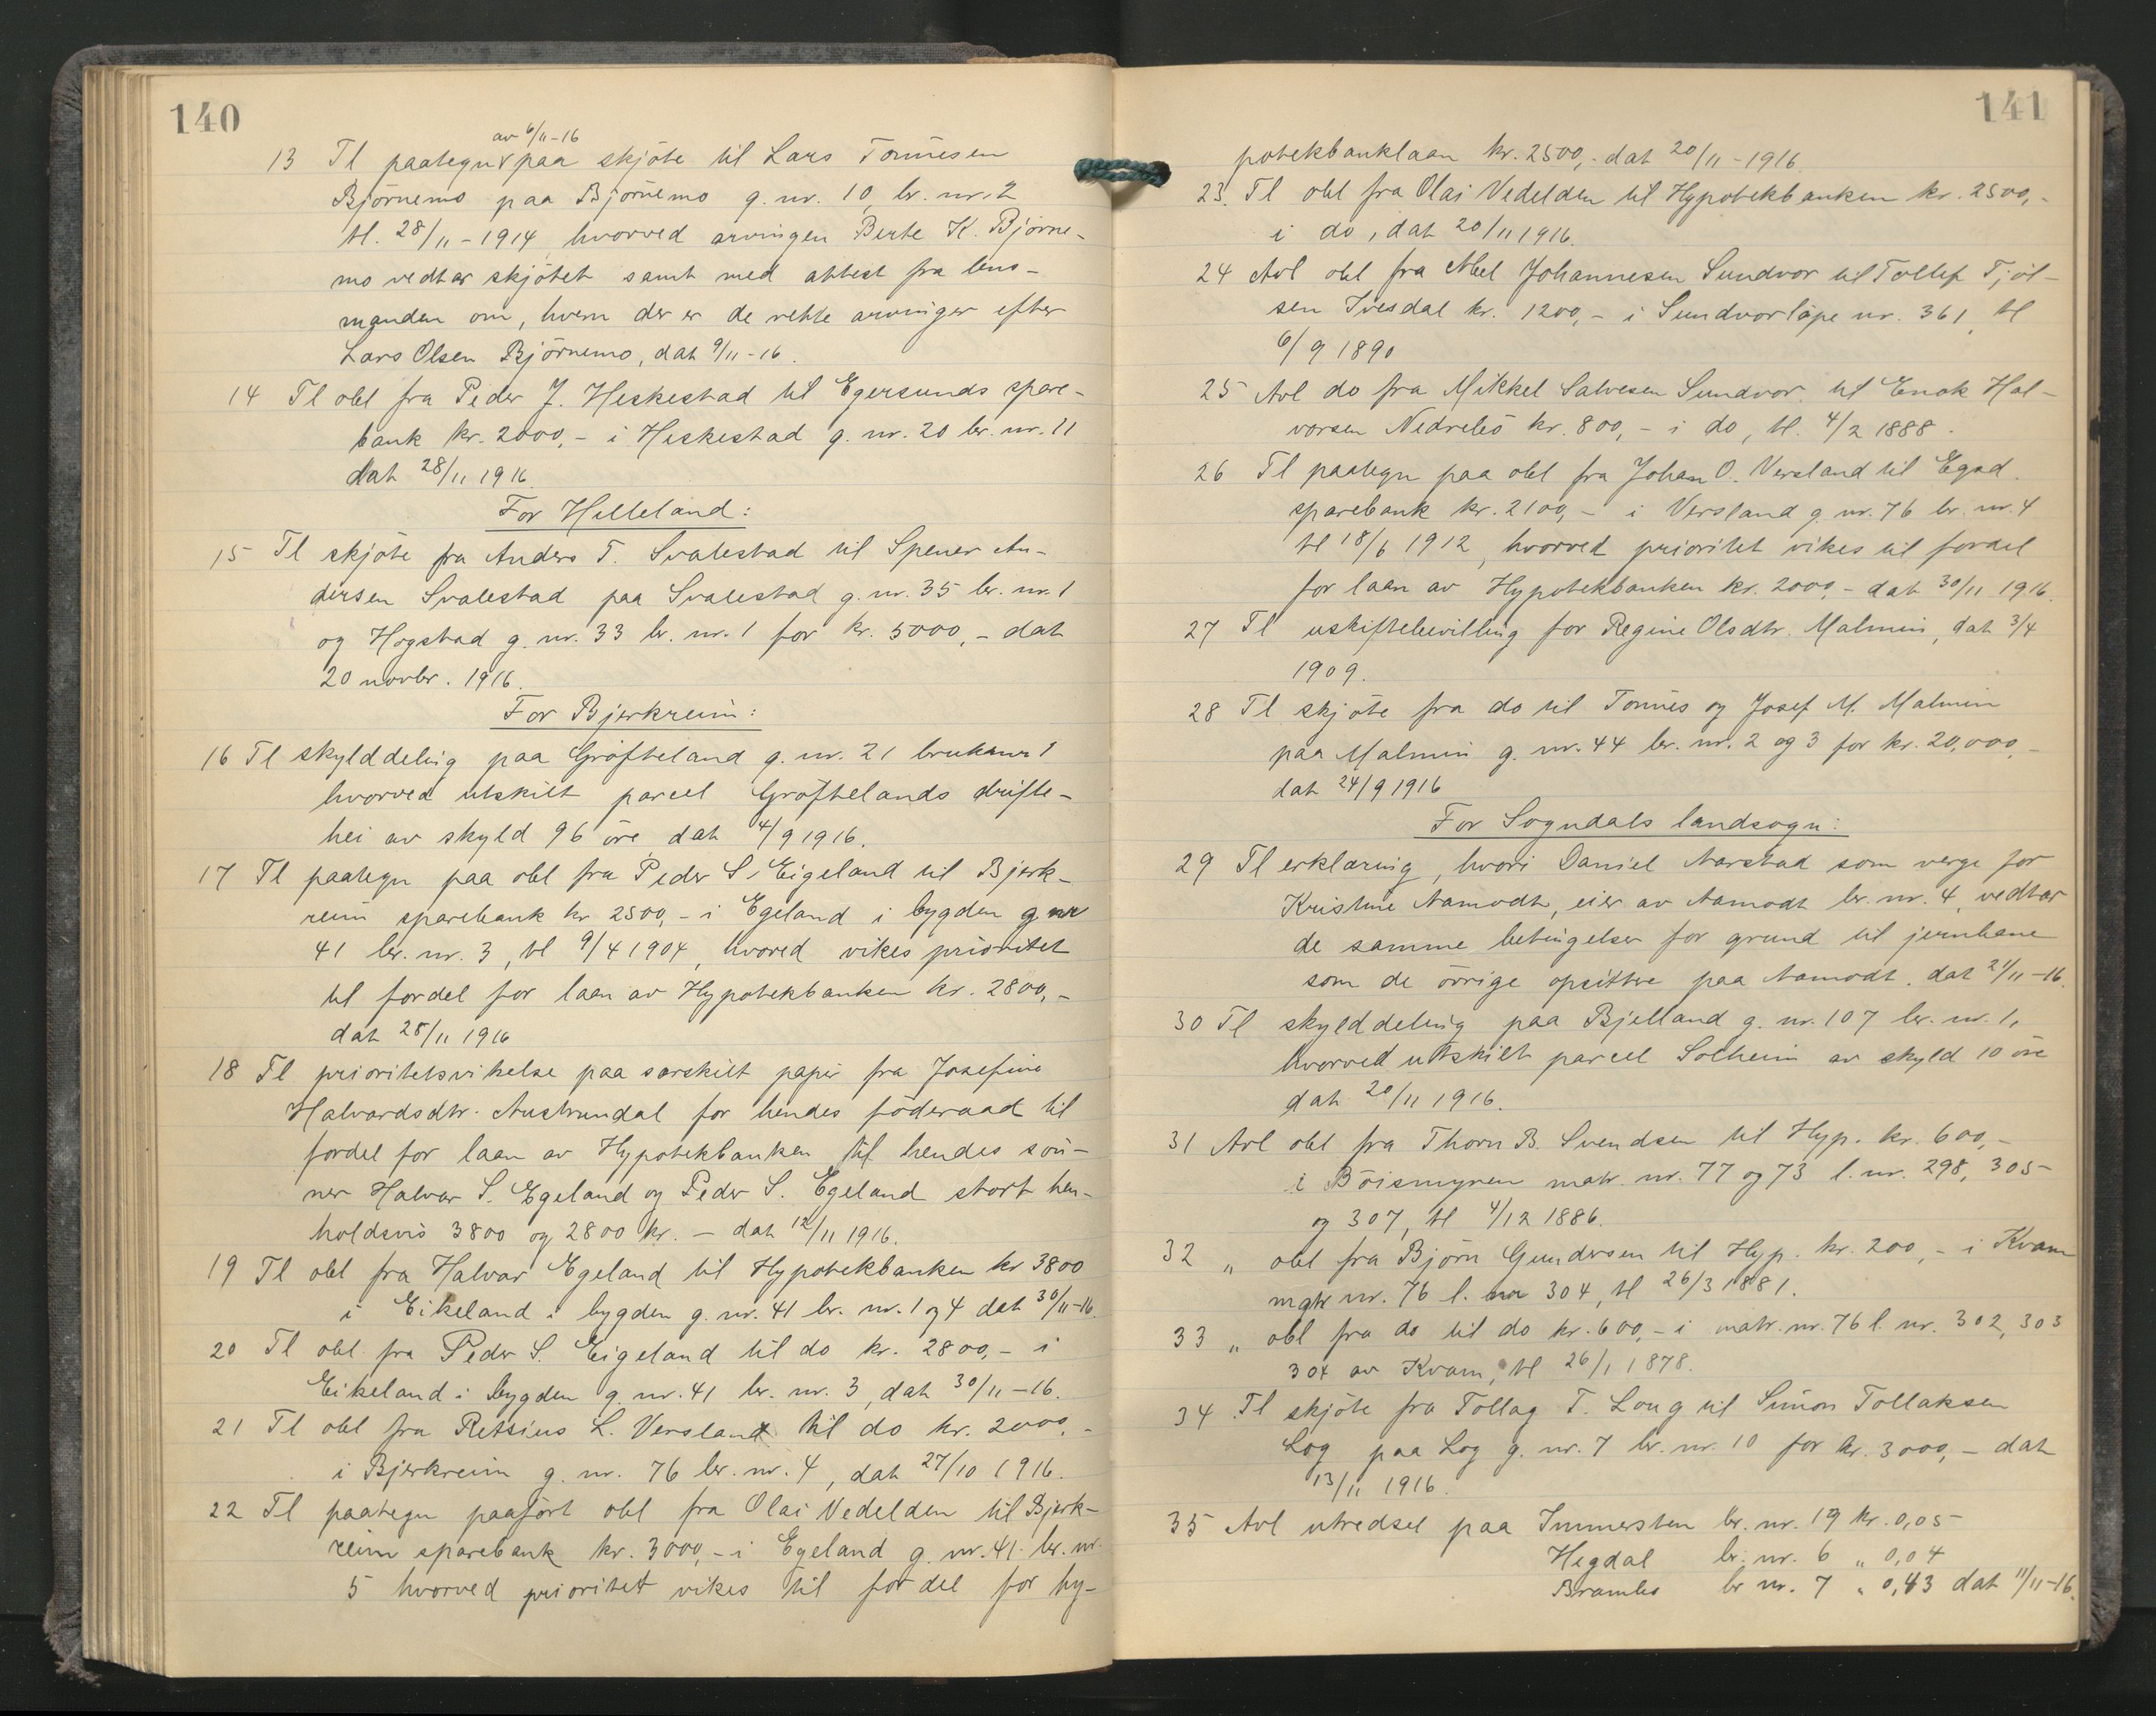 140
av 6/11-16
13 Tl paategn paa skjöte til Lars Tönnesen
Björnemo paa Björnemo g. nr. 10, br. nr. 2
tl. 28/11-1914, hvorved arvingen Berte K. Björne-
mo vedtar skjötet samt med attest fra lens-
manden om, hvem der er de rette arvinger efter
Lars Olsen Björnemo, dat 9/11-16.
14 Tl obl fra Peder J. Heskestad til Egersunds spare-
bank kr. 2000,- i Heskestad g. nr. 20 br. nr. 11
dat 28/11 1916.
For Helleland:
15 Tl skjöte fra Anders T. Svalestad til Spener An-
dersen Svalestad paa Svalestad g. nr. 35 br. nr. 1
og Hogstad g. nr. 33 br. nr. 1 for kr. 5000,- dat
20 novbr. 1916.
For Bjerkreim:
16 Tl skylddeling paa Gröfteland g. nr. 21 bruksnr 1
hvorved utskilt parcel Gröftelands drifte-
hei av skyld 96 öre dat 4/9 1916.
17 Tl paategn paa obl fra Peder S. Eigeland til Bjerk-
reim sparebank kr 2500,- i Egeland i bygden g nr
41 br. nr. 3, tl 9/4 1904, hvored vikes prioritet
til fordel for laan av Hypotekbanken kr. 2800,-
dat 28/11 1916
18 Tl prioritetsvikelse paa særskilt papir fra Josefine
Halvardsdtr. Austrumdal for hendes föderaad til
fordel for laan av Hypotekbanken til hendes sön-
ner Halvar S. Egeland og Peder S. Egeland stort hen-
holdsvis 3800 og 2800 kr. - dat 12/11 1916.
19 Tl obl fra Halvar Egeland til Hypotekbanken kr 3800
i Eikeland i bygden g. nr. 41 br. nr. 1 og 4 dat 30/11-16.
20 Tl obl fra Peder S. Eigeland til do kr. 2800,- i
Eikeland i bygden g. nr. 41 br. nr. 3, dat 30/11-16.
21 Tl obl fra Retsius L. Versland til do kr. 2000,-
i Bjerkreim g. nr. 76 br. nr. 4, dat 27/10 1916.
22 Tl paategn paafört obl fra Olai Vedelden til Bjerk-
reim sparebank kr. 3000,- i Egeland g. nr. 41 br. nr.
5 hvorved prioritet vikes til fordel for hy-
141
potekbanklaan kr. 2500,- dat 20/11-1916.
23. Tl obl fra Olai Vedelden til Hypotekbanken kr. 2500,-
i do, dat 20/11 1916.
24 Avl obl fra Abel Johannesen Sundvor til Tollef Tjöl-
sen Ivesdal kr. 1200,- i Sundvor löpe nr. 361, tl
6/9 1890
25 Avl do fra Mikkel Salvesen Sundvor til Enok Hal-
vorsen Nedrebö kr. 800,- i do, tl. 4/2 1888.
26 Tl paategn paa obl fra Johan O. Versland til Egsd
sparebank kr. 2100,- i Versland g. nr. 76 br. nr. 4
tl 18/6 1912, hvorved prioritet vikes til fordel
for laan av Hypotekbanken kr. 2000,- dat 30/11 1916.
27 Tl uskiftebevilling for Regine Olsdtr. Malmin, dat 3/4
1909.
28 Tl skjöte fra do til Tönnes og Josef M. Malmin
paa Malmin g. nr. 44 br. nr. 2 og 3 for kr. 20,000,-
dat 24/9 1916
For Sogndals landsogn:
29 Tl erklæring, hvori Daniel Aarstad som verge for
Kristine Aamodt, eier av Aamodt br. nr. 4, vedtar
de samme betingelser for grund til jernbane
som de övrige opsittere paa Aamodt. dat 21/11-16.
30 Tl skylddeling paa Bjelland g. nr. 107 br. nr. 1,
hvorved utskilt parcel Solheim av skyld 10 öre
dat 20/11 1916.
31 Avl obl fra Thorn B. Svendsen til Hyp. kr. 600,-
i Böismyren matr. nr. 77 og 73 l. nr. 298, 305
og 307, tl 4/12 1886.
32 „ obl fra Björn Gundersen til Hyp. kr. 200,- i Kvam
matr nr. 76 l. nr 304, tl 26/3 1881.
33 „ obl fra do til do kr. 600,- i matr. nr. 76 l. nr. 302, 303
304 av Kvam, tl 26/1 1878.
34 Tl skjöte fra Tollag T. Loug til Simon Tollaksen
Log paa Log g. nr. 7 br. nr. 10 for kr. 3000,- dat
13/11 1916.
35 Avl utredsel paa Immersten br. nr. 19 kr. 0,05
Hegdal br. nr. 6 „ 0,04
Brambo br nr. 7 „ 0,43 dat 11/11-16.